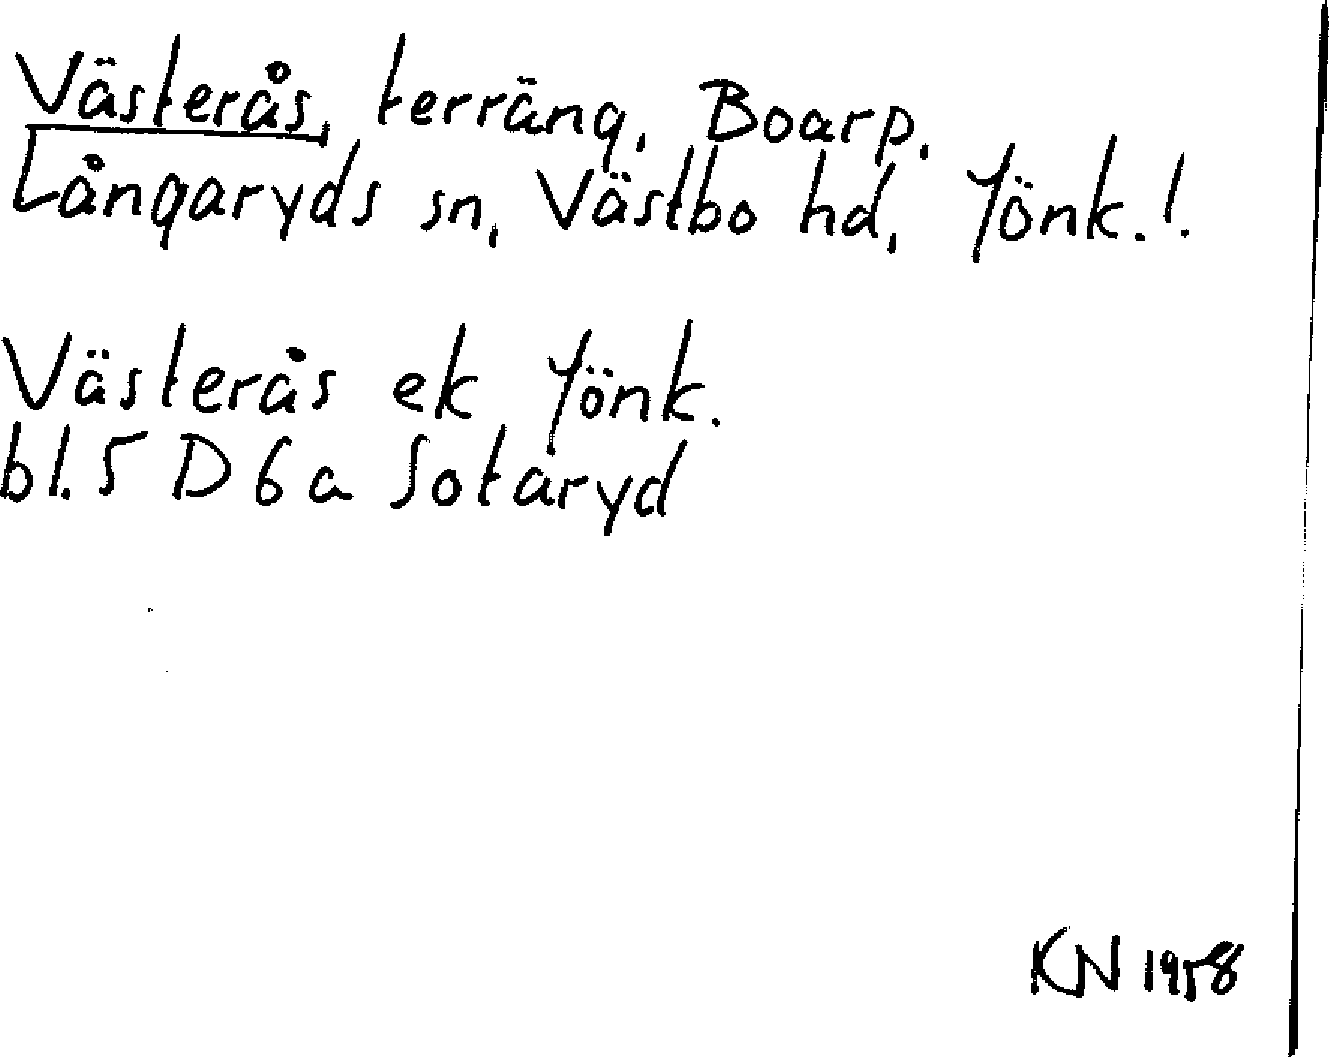 Västerås, terräng, Boarp,
Långaryds sn, Västbo hd, Jönk.!
Västerås ek Jönk.
bl. 5 D 6 a Sotaryd
KN 1958